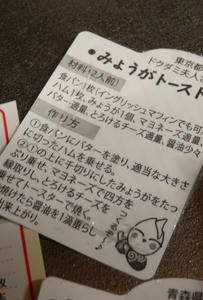 東京都
ドクダミ夫人
●みょうがトースト
材料(2人前)
食パン1枚(イングリッシュマフィンでも可)
ハム1枚、みょうが1個、マヨネーズ適量、
バター適量、とろけるチーズ適量、醤油少々
作り方
①食パンにバターを塗り、適当な大きさ
に切ったハムを乗せる。
②①の上に千切りにしたみょうがをたっ
ぷり乗せ、マヨネーズで四方を
縁取りし、とろけるチーズを
乗せてトースターで焼く。
焼けたら醤油を1滴垂らし
出来上がり。
青森県